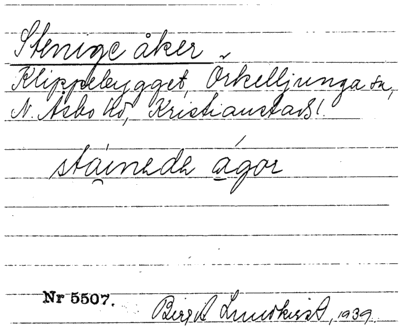 Stenige åker
Klippebygget, Örkelljunga sn,
N. Åsbo hd, Kristianstads l.
stainede ågor
Nr 5507.
Birgit Lundkvist, 1939.